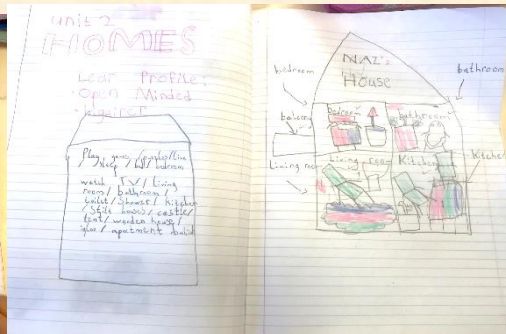 Unit 2
HOMES
Lear Profile:
Open Minded
Play
/ sleep / / bedroom
watch TV / Living
room / bathroom /
toilet / Shower / Kitchen
/ castle /
/ wooden house /
igloo / apartment
NAZ's
House
bedroom
bathroom
balcony
bedroom
bathroom
Living room
Living room
Kitchen
Kitchen